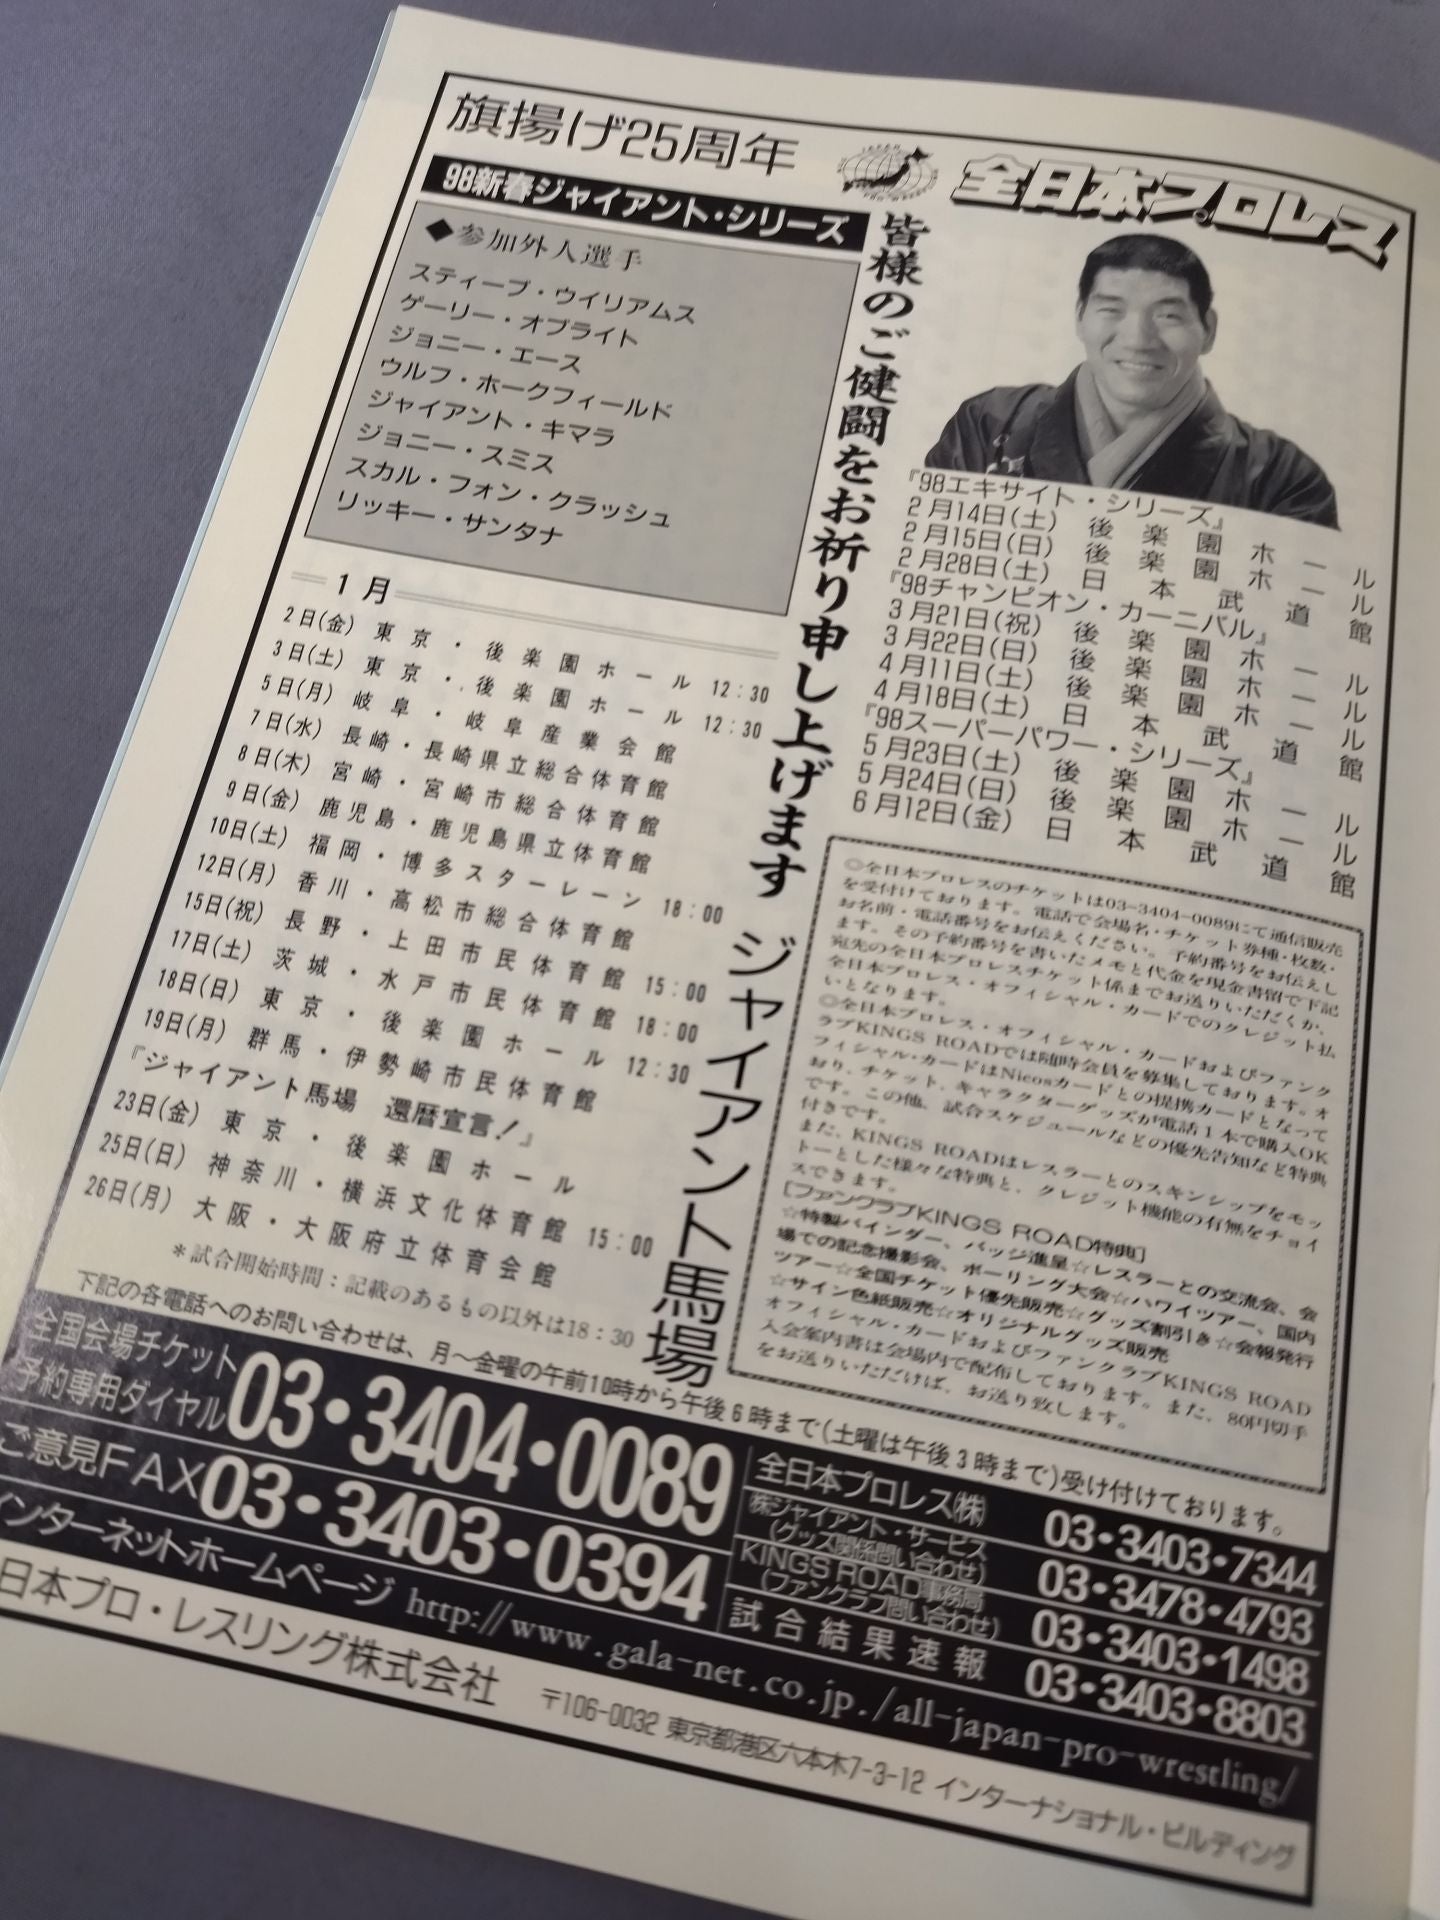 旗揚げ25周年
全日本プロレス
98新春ジャイアント・シリーズ
◆参加外人選手
スティーブ・ウイリアムス
ゲーリー・オブライト
ジョニー・エース
ウルフ・ホークフィールド
ジャイアント・キマラ
ジョニー・スミス
スカル・フォン・クラッシュ
リッキー・サンタナ
1月
2日(金) 東京・後楽園ホール 12:30
3日(土) 東京・後楽園ホール 12:30
5日(月) 岐阜・岐阜産業会館
7日(水) 長崎・長崎県立総合体育館
8日(木) 宮崎・宮崎市総合体育館
9日(金) 鹿児島・鹿児島県立体育館
10日(土) 福岡・博多スターレーン 18:00
12日(月) 香川・高松市総合体育館
15日(祝) 長野・上田市民体育館 15:00
17日(土) 茨城・水戸市民体育館 18:00
18日(日) 東京・後楽園ホール 12:30
19日(月) 群馬・伊勢崎市民体育館
『ジャイアント馬場 還暦宣言!』
23日(金) 東京・後楽園ホール
25日(日) 神奈川・横浜文化体育館 15:00
26日(月) 大阪・大阪府立体育会館
*試合開始時間:記載のあるもの以外は18:30
皆様のご健闘をお祈り申し上げます ジャイアント馬場
『98エキサイト・シリーズ』
2月14日(土) 後楽園ホール
2月15日(日) 後楽園ホール
2月28日(土) 日本武道館
『98チャンピオン・カーニバル』
3月21日(祝) 後楽園ホール
3月22日(日) 後楽園ホール
4月11日(土) 後楽園ホール
4月18日(土) 日本武道館
『98スーパーパワー・シリーズ』
5月23日(土) 後楽園ホール
5月24日(日) 後楽園ホール
6月12日(金) 日本武道館
◎全日本プロレスのチケットは03-3404-0089にて通信販売
を受付けております。電話で会場名・チケット券種・枚数・
お名前・電話番号をお伝えください。予約番号をお伝えし
ます。その予約番号を書いたメモと代金を現金書留で下記
宛先の全日本プロレスチケット係までお送りいただくか、
全日本プロレス・オフィシャル・カードでのクレジット払
いとなります。
◎全日本プロレス・オフィシャル・カードおよびファンク
ラブKINGS ROADでは随時会員を募集しております。オ
フィシャル・カードはNicosカードとの提携カードとなって
おり、チケット、キャラクターグッズが電話1本で購入OK
です。この他、試合スケジュールなどの優先告知など特典
付きです。
また、KINGS ROADはレスラーとのスキンシップをモッ
トーとした様々な特典と、クレジット機能の有無をチョイ
スできます。
[ファンクラブKINGS ROAD特典]
☆特製バインダー、バッジ進呈☆レスラーとの交流会、会
場での記念撮影会、ボーリング大会☆ハワイツアー、国内
ツアー☆全国チケット優先販売☆グッズ割引き☆会報発行
☆サイン色紙販売☆オリジナルグッズ販売
オフィシャル・カードおよびファンクラブKINGS ROAD
入会案内書は会場内で配布しております。また、80円切手
をお送りいただければ、お送り致します。
下記の各電話へのお問い合わせは、月〜金曜の午前10時から午後6時まで(土曜は午後3時まで)受け付けております。
全国会場チケット
予約専用ダイヤル 03・3404・0089
ご意見FAX 03・3403・0394
全日本プロレス㈱ 03・3403・7344
㈱ジャイアント・サービス
(グッズ関係問い合わせ) 03・3478・4793
KINGS ROAD事務局
(ファンクラブ問い合わせ) 03・3403・1498
試合結果速報 03・3403・8803
インターネットホームページ http://www.gala-net.co.jp./all-japan-pro-wrestling/
日本プロ・レスリング株式会社 〒106-0032 東京都港区六本木7-3-12 インターナショナル・ビルディング